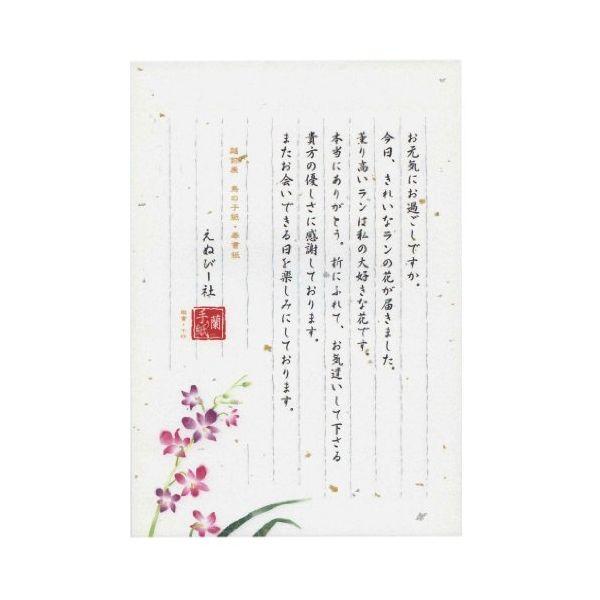 お元気にお過ごしですか。
今日、きれいなランの花が届きました。
薫り高いランは私の大好きな花です。
本当にありがとう。折にふれて、お気遣いして下さる
貴方の優しさに感謝しております。
またお会いできる日を楽しみにしております。
越前產 鳥の子紙・奉書紙
えぬびー社
蘭
手紙